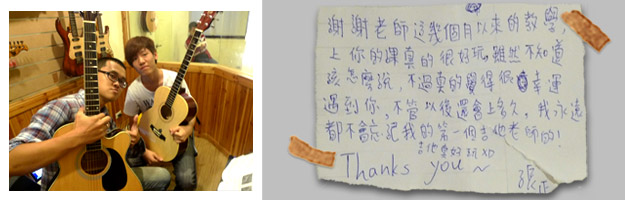 謝謝老師這幾個月以來的教學,
上你的課真的很好玩,雖然不知道
該怎麼說,不過真的覺得很幸運
遇到你,不管以後還會上多久,我永遠
都不會忘記我的第一個吉他老師的!
吉他要好玩XD
Thanks you~
張正